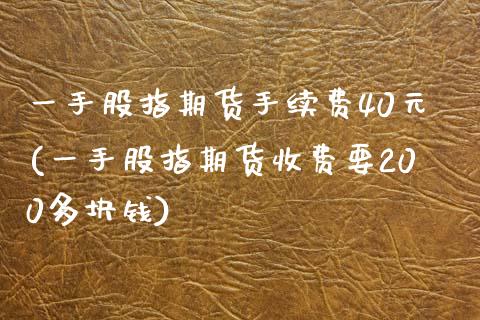 一手股指期货手续费40元
(一手股指期货收费要20
0多块钱)